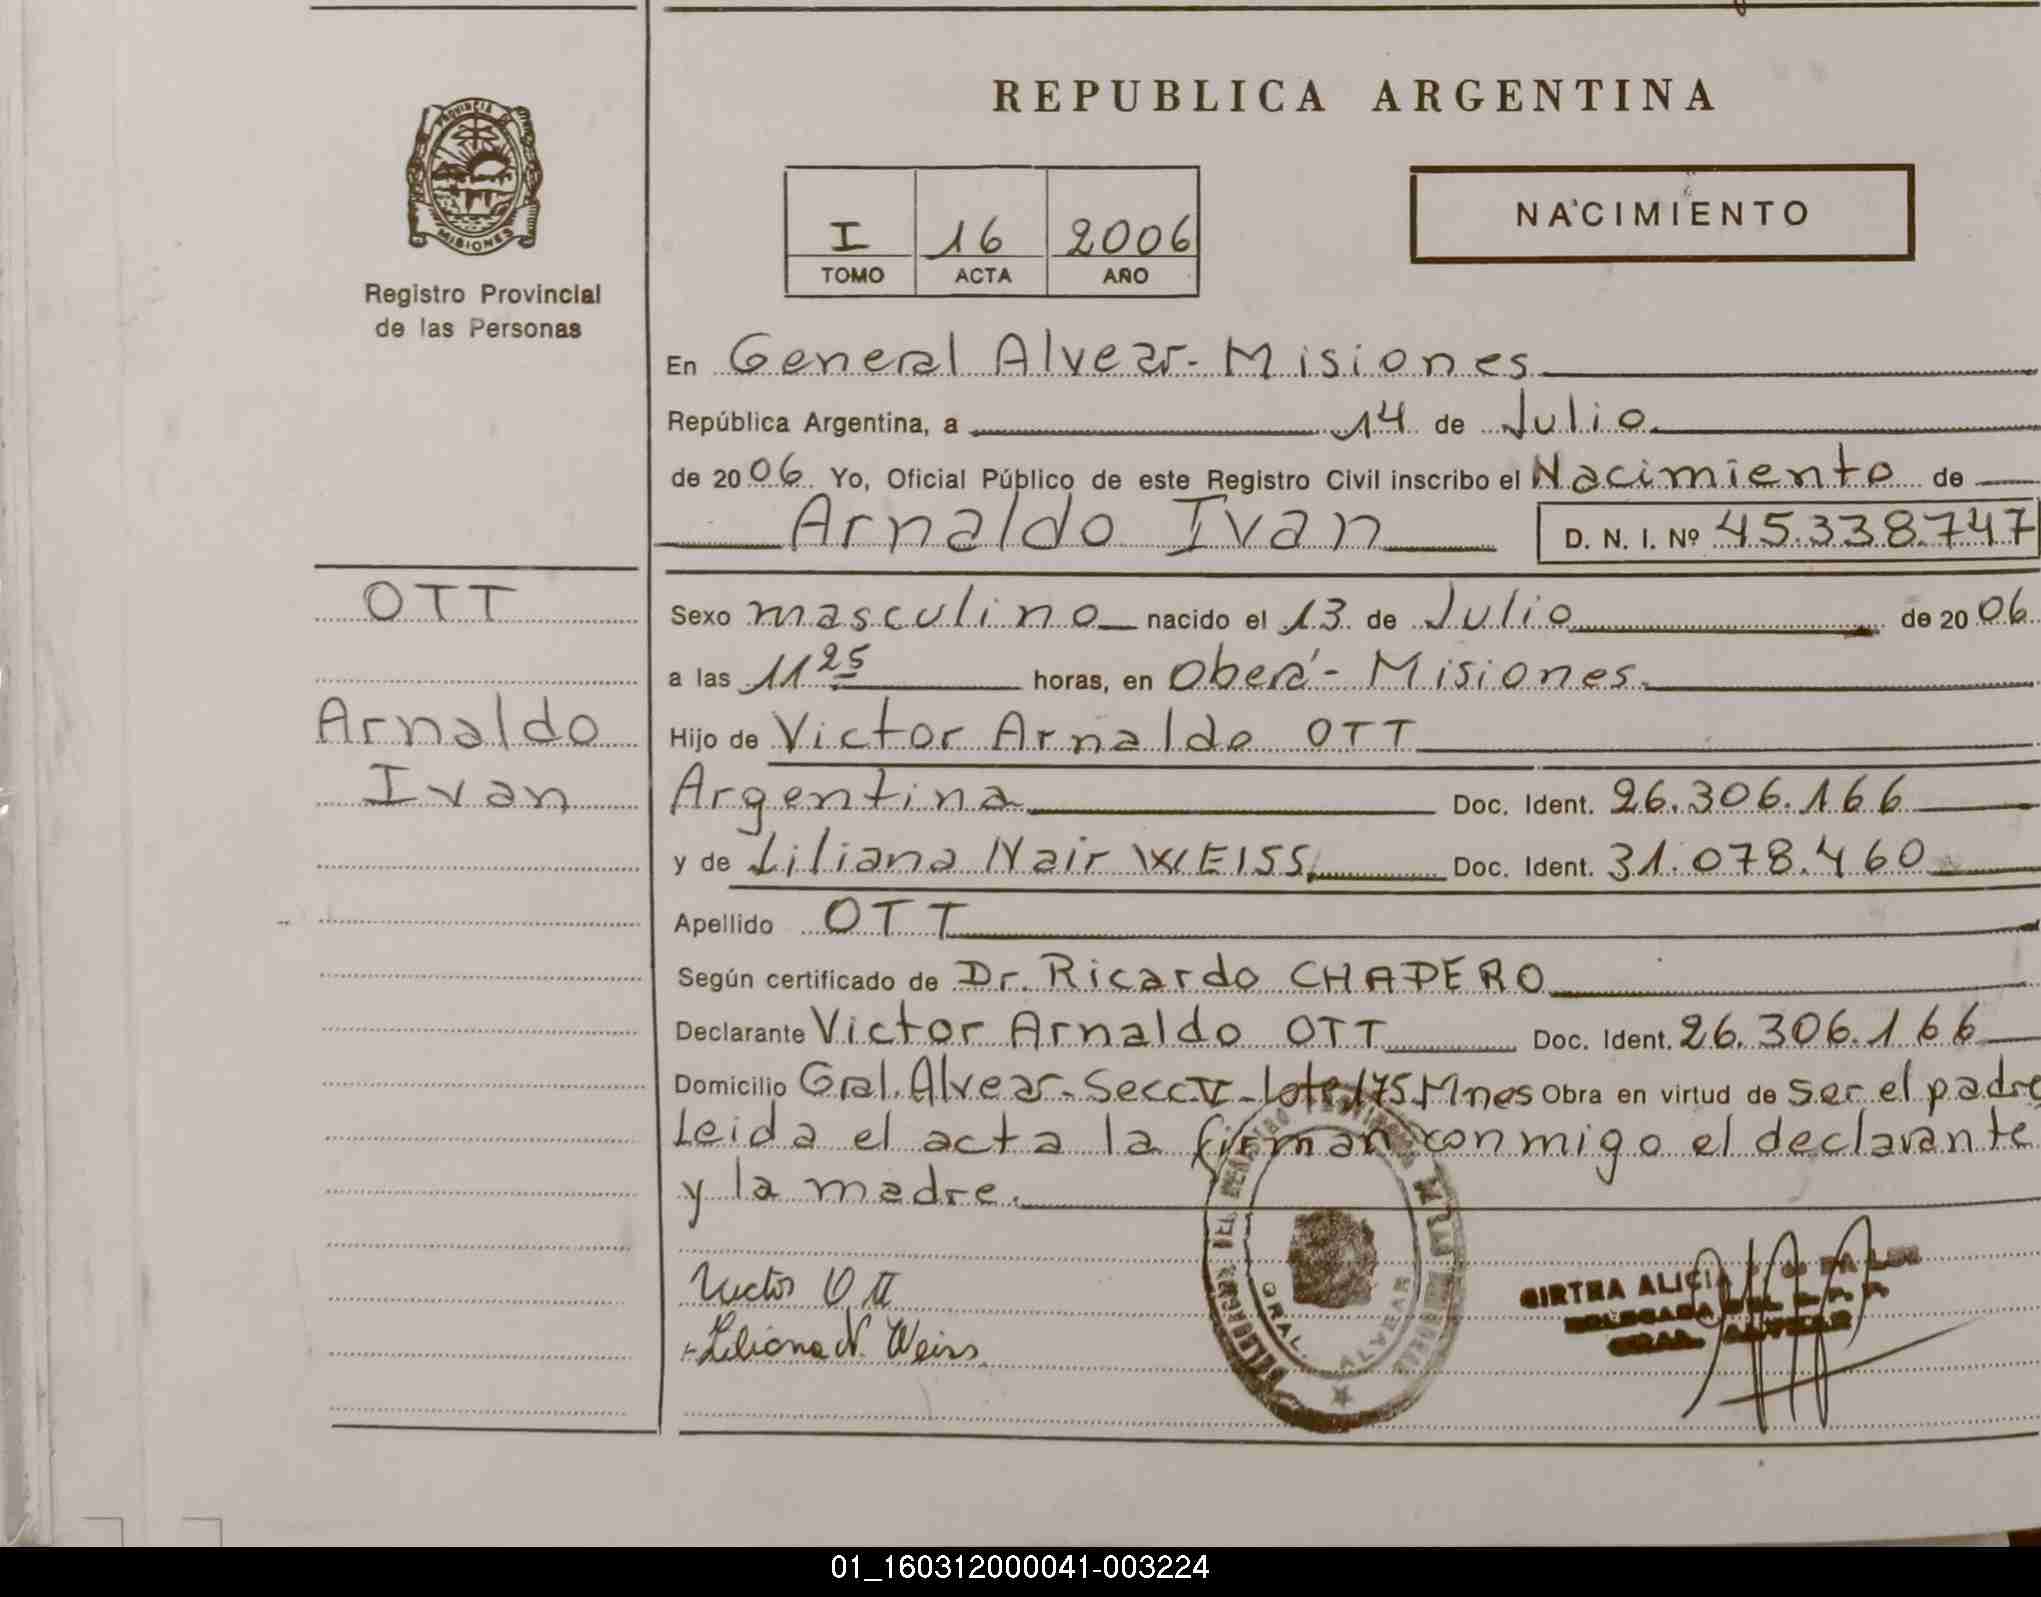 REPUBLICA ARGENTINA
PROVINCIA DE
MISIONES
Registro Provincial
de las Personas
I 16 2006
TOMO ACTA AÑO
NACIMIENTO
En General Alvear - Misiones
República Argentina, a 14 de Julio
de 2006 Yo, Oficial Público de este Registro Civil inscribo el Nacimiento de
Arnaldo Ivan D. N. I. Nº 45.338.747
OTT
Arnaldo
Ivan
Sexo masculino nacido el 13 de Julio de 2006
a las 11 25 horas, en Oberá - Misiones.
Hijo de Victor Arnaldo OTT
Argentina Doc. Ident. 26.306.166
y de Liliana Nair WEISS Doc. Ident. 31.078.460
Apellido OTT
Según certificado de Dr. Ricardo CHAPERO
Declarante Victor Arnaldo OTT Doc. Ident. 26.306.166
Domicilio Gral. Alvear - Secc V - Lote 175 Mnes Obra en virtud de ser el padre
Leida el acta la firman conmigo el declarante
y la madre.
Victor Ott
Liliana N. Weiss
GRAL. ALVEAR
ALICIA
DELEGADA
GRAL. ALVEAR
01_160312000041-003224